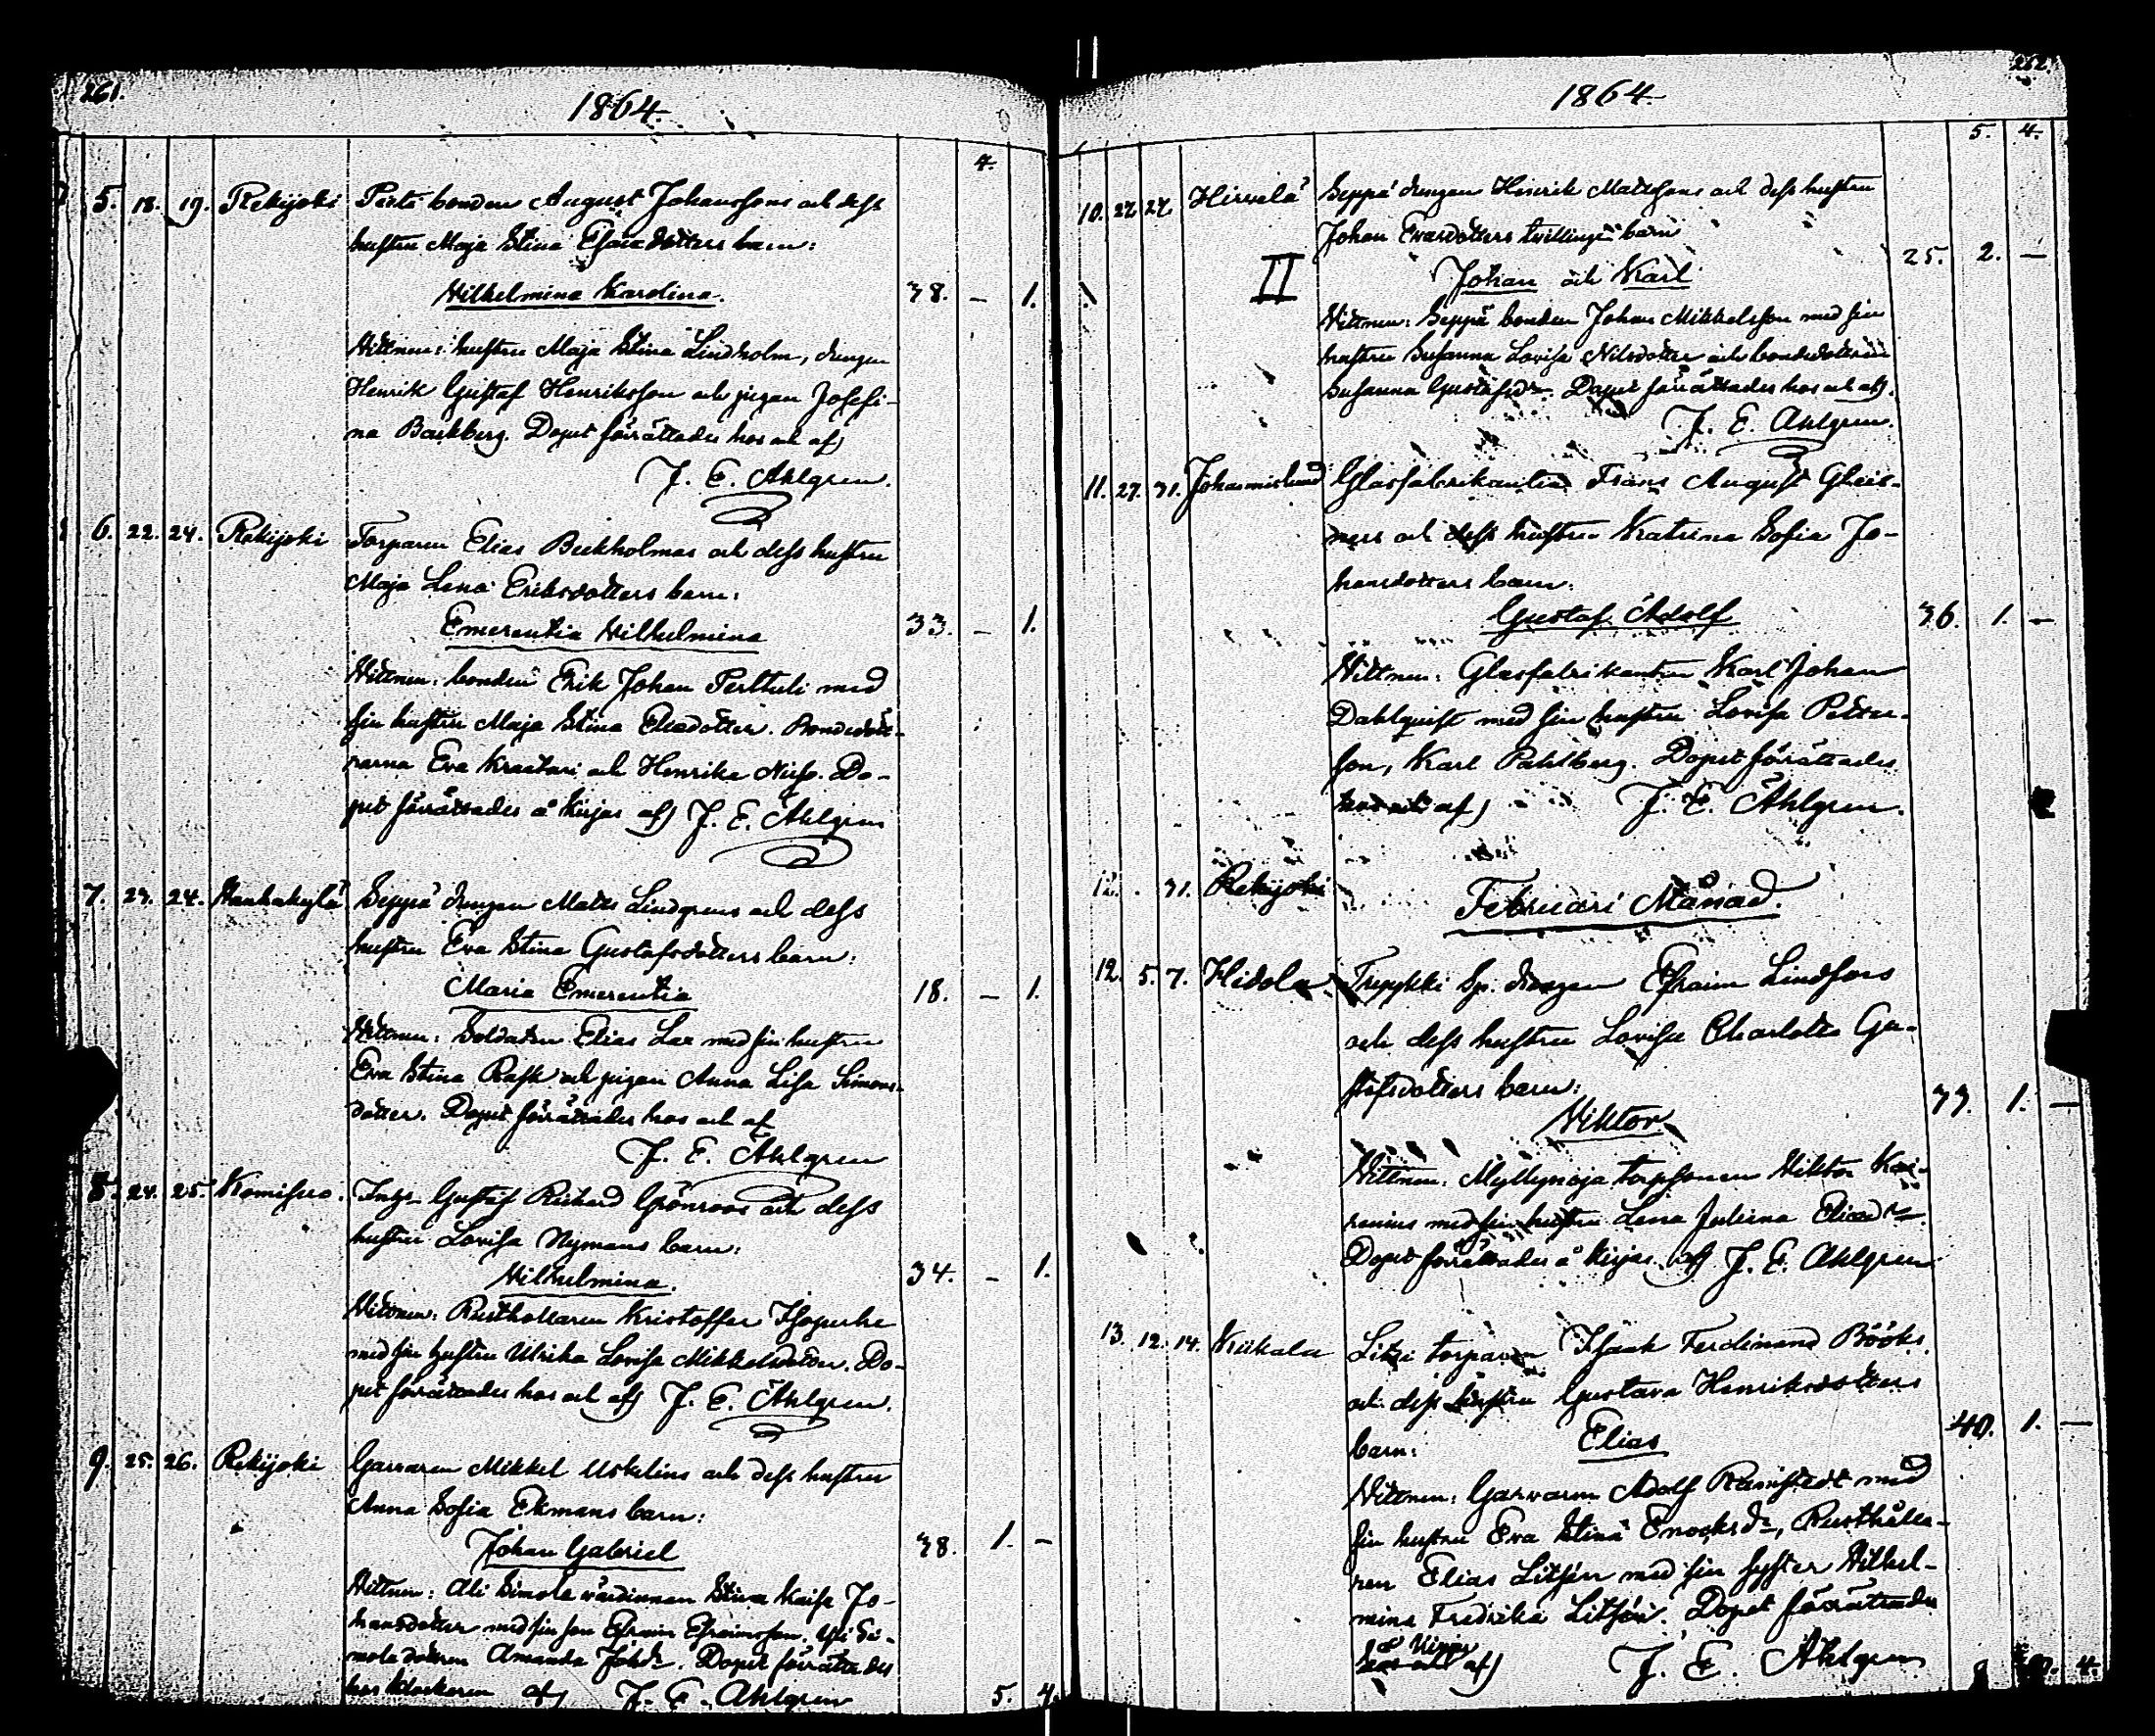 261.
1864.
4.
5. 18. 19. Rekijoki Perté bonden August Johanssons och dess
hustru Maja Stina Esaiædotters barn:
Wilhelmina Karolina. 38. – 1.
Vittnen: hustru Maja Stina Lindholm, drengen
Henrik Gustaf Henriksson och pigan Josefi-
na Backberg. Dopet förrättades hos och af
J. E. Ahlgren.
6. 22. 24. Rekijoki Torparen Elias Beckholmas och dess hustru
Maja Lena Eriksdotters barn:
Emerentia Wilhelmina 33. – 1.
Vittnen: bonden Erik Johan Perttuli med
sin hustru Maja Stina Eliædotter. Bondedött-
rarna Eva Kraatari och Henrika Nisso. Do-
pet förrättades å Kirjas af J. E. Ahlgren
7. 23. 24. Hankakylä Seppä drengen Matts Lindgrens och dess
hustru Eva Stina Gustafsdotters barn:
Maria Emerentia 18. – 1.
Vittnen: Soldaten Elias Lax med sin hustru
Eva Stina Rask och pigan Anna Lisa Simons-
dotter. Dopet förrättades hos och af
J. E. Ahlgren
8. 24. 25. Komisuo. Inhs. Gustaf Rickard Grönroos och dess
hustru Lovisa Nymans barn:
Wilhelmina. 34. – 1.
Vittnen: Rusthollaren Kristoffer Isoperhe
med sin hustru Ulrika Lovisa Mikkelsdotter. Do-
pet förrättades hos och af J. E. Ahlgren.
9. 25. 26. Rekijoki Garvaren Mikkel Uskelins och dess hustru
Anna Sofia Ekmans barn:
Johan Gabriel 38. 1. –
Vittnen: Ali Simola värdinnan Stina Kaisa Jo-
hansdotter med sin son Efraim Efraimsson. Yli Si-
mola dottren Amanda Johdr. Dopet förrättades
hos klockaren af J. E. Ahlgren
5. 4.
262.
1864.
5. 4.
10. 22. 24. Hirvelä Seppä drengen Henrik Mattssons och dess hustru
Johan Evasdotters tvillinge barn
II Johan och Karl 25. 2. –
Vittnen: Seppä bonden Johan Mikkelsson med sin
hustru Susanna Lovisa Nilsdotter och bondedottren
Susanna Gustafsdr. Dopet förrättades hos och af
J. E. Ahlgren.
11. 27. 31. Johannislund Glasfabrikanten Frans August Gleis-
ners och dess hustru Katrina Sofia Jo-
hansdotters barn.
Gustaf Adolf 36. 1. –
Vittnen: Glasfabrikanten Karl Johan
Dahlquist med sin hustru Lovisa Petter-
son, Karl Pahlberg. Dopet förrättades
hos och af J. E. Ahlgren.
12. 31. Rekijoki
Februari Månad.
12. 5. 7. Hidola Trepykki Sp. drengen Efraim Lindfors
och dess hustru Lovisa Charlotta Gu-
stafsdotters barn:
Viktor 33. 1. –
Vittnen: Myllynoja torpsonen Viktor Kai-
renius med sin hustru Lena Juliana Eliædr.
Dopet förrättades å Kirjas af J. E. Ahlgren
13. 12. 14. Kiikala Litzi torparen Isaak Ferdinand Bööks
och dess hustru Gustava Henriksdotters
barn: Elias 40. 1. –
Vittnen: Garvaren Adolf Ramstedt med
sin hustru Eva Stina Enocksdr, Rusthålla-
ren Elias Litzén med sin syster Wilhel-
mina Fredrika Litzén. Dopet förrättades
å Kirjas
hos och af J. E. Ahlgren
4.